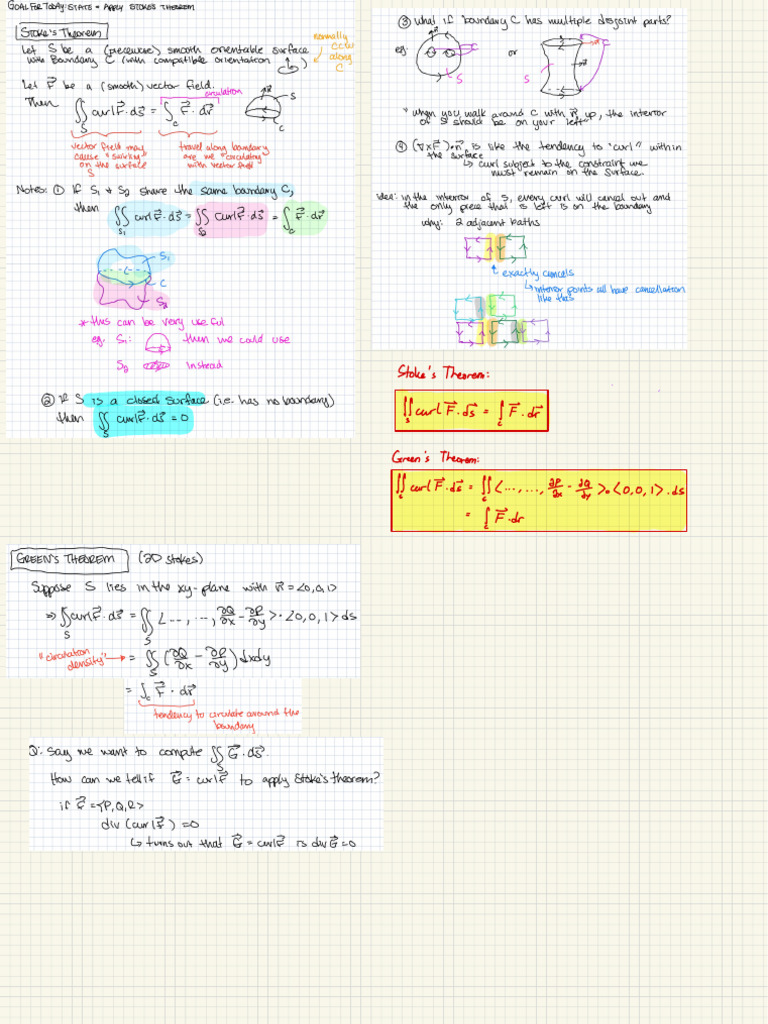 GOAL FOR TODAY: STATE + APPLY STOKE'S THEOREM
Stoke's Theorem
Let S be a (piecewise) smooth orientable surface
with Boundary C (with compatible orientation )
normally
CCW
along
C
Let F⃗ be a (smooth) vector field.
circulation
Then ∬_S curl F⃗ · dS⃗ = ∫_C F⃗ · dr⃗
n⃗
S
C
vector field may
cause "swirling"
on the surface
S
travel along boundary
are we "circulating"
with vector field
Notes: ① If S₁ & S₂ share the same boundary C,
then ∬_S₁ curl F⃗ · dS⃗ = ∬_S₂ curl F⃗ · dS⃗ = ∫_C F⃗ · dr⃗
S₁
C
S₂
* this can be very useful
eg. S₁: then we could use
S₂ instead
② If S is a closed surface (i.e. has no boundary)
then ∬_S curl F⃗ · dS⃗ = 0
③ What if boundary C has multiple disjoint parts?
eg. C S or S n⃗ C
* when you walk around C with n⃗ up, the interior
of S should be on your left
④ (∇×F⃗)·n⃗ is like the tendency to "curl" within
the surface
↳ curl subject to the constraint we
must remain on the surface.
Idea: in the interior of S, every curl will cancel out and
the only piece that is left is on the boundary
why: 2 adjacent paths
exactly cancels
↳ interior points all have cancellation
like this
Stoke's Theorem:
∬_S curl F⃗ · dS⃗ = ∫_C F⃗ · dr⃗
Green's Theorem:
∬_C curl F⃗ · dS⃗ = ∬_C <..., ..., ∂P/∂x - ∂Q/∂y> · <0,0,1> · ds
= ∫_C F⃗ · dr
GREEN'S THEOREM (2D Stokes)
Suppose S lies in the xy-plane with n⃗ = <0,0,1>
⇒ ∬_S curl F⃗ · dS⃗ = ∬_S <..., ..., ∂Q/∂x - ∂P/∂y> · <0,0,1> ds
"circulation
density" → = ∬_S (∂Q/∂x - ∂P/∂y) dxdy
= ∫_C F⃗ · dr⃗
tendency to circulate around the
boundary
Q: Say we want to compute ∬_S G⃗ · dS⃗.
How can we tell if G⃗ = curl F⃗ to apply Stoke's theorem?
if G⃗ = <P,Q,R>
div (curl F⃗) = 0
↳ turns out that G⃗ = curl F⃗ is div G⃗ = 0